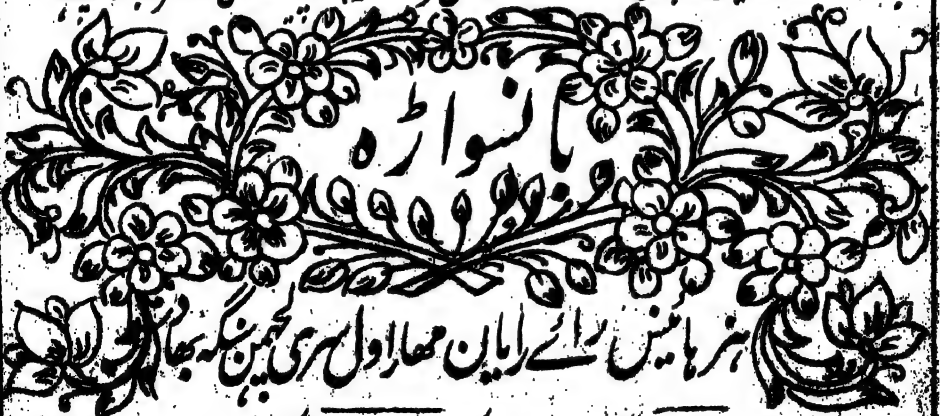 بانسواڑہ
ہنر ہائینس رائے رایان مھاراول سری لچھمن سنگھ بھا